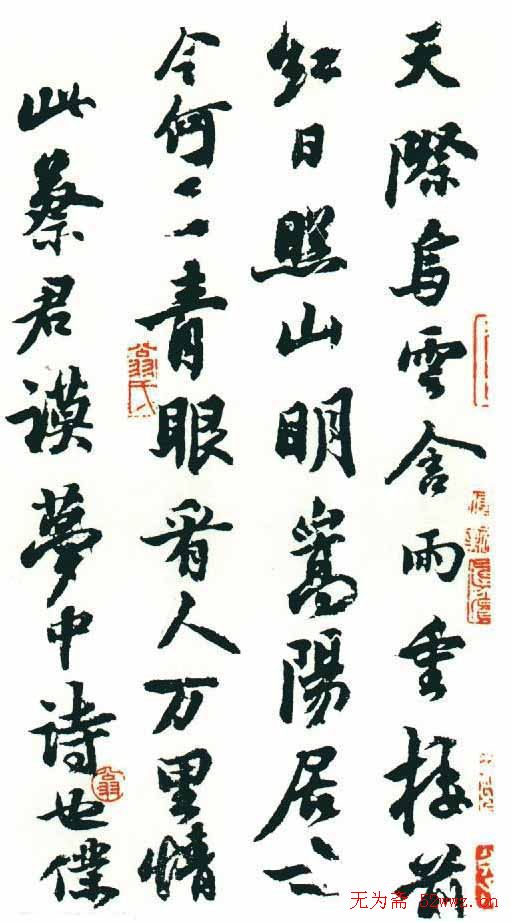 天際烏雲含雨重樓前
紅日照山明嵩陽居士
今何在青眼看人万里情
此蔡君謨夢中詩也僕
翁氏
翁
无为斋 52wwz.cn